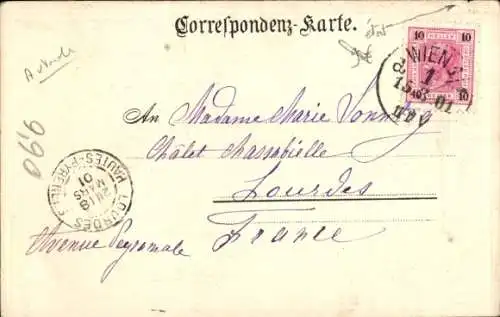 Correspondenz-Karte.
10 HELLER 10
WIEN
1
15.3.01
An Madame Marie Sonntag
Châlet Massabielle
Lourdes
Avenue Peyramale
France
LOURDES
18
MARS
01
HAUTES-PYRÉNÉES
9,90